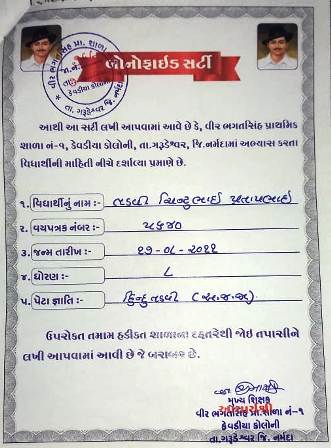 વીર ભગતસિંહ પ્રા. શાળા
કેવડીયા કોલોની
તા. ગરૂડેશ્વર જિ. નર્મદા
બોનોફાઇડ સર્ટી
આથી આ સર્ટી લખી આપવામાં આવે છે કે, વીર ભગતસિંહ પ્રાથમિક
શાળા નં-૧, કેવડીયા કોલોની, તા.ગરૂડેશ્વર, જિ.નર્મદામાં અભ્યાસ કરતા
વિદ્યાર્થીની માહિતી નીચે દર્શાવ્યા પ્રમાણે છે.
૧. વિદ્યાર્થીનું નામ :- તડવી ભાઈ
૨. વયપત્રક નંબર :- ૫૬૪૦
૩. જન્મ તારીખ :- ૧૭-૦૮-૨૦૧૧
૪. ધોરણ :- ૮
૫. પેટા જ્ઞાતિ :- હિન્દુ તડવી (અ.જ.જા)
ઉપરોક્ત તમામ હકીકત શાળાના દફતરેથી જોઇ તપાસીને
લખી આપવામાં આવી છે જે બરાબર છે.
મુખ્ય શિક્ષક
વીર ભગતસિંહ પ્રા.શાળા નં-૧
કેવડીયા કોલોની
તા.ગરૂડેશ્વર જિ. નર્મદા